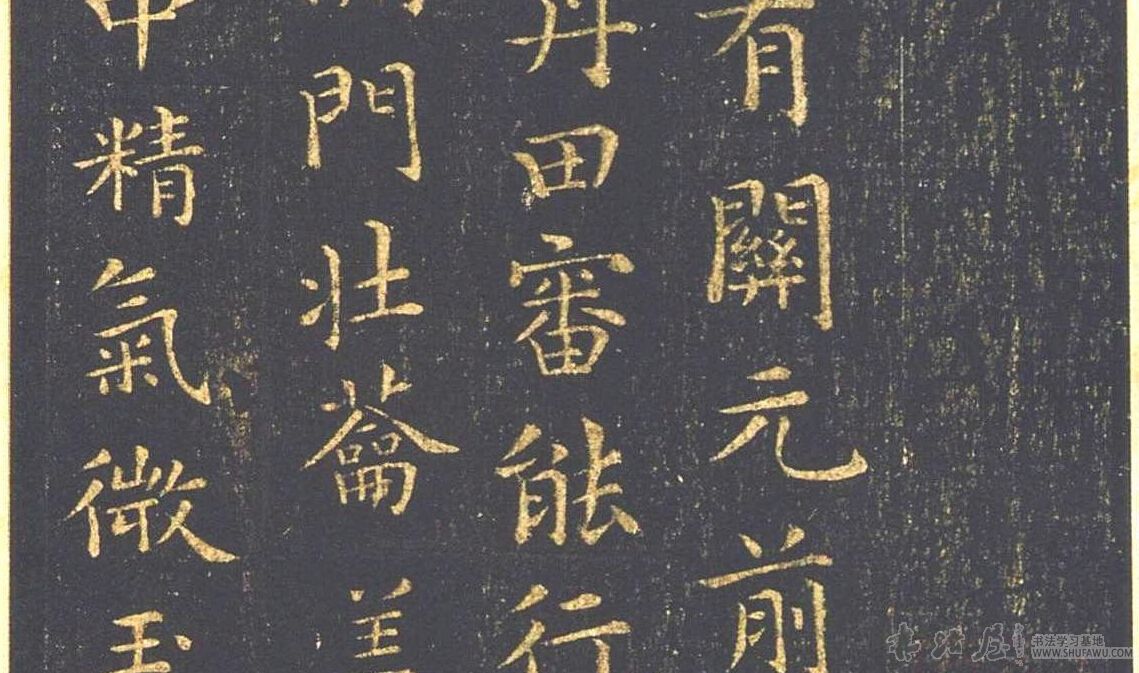 有關元前
丹田審能行
門壯蘥
中精氣微玉
书法学习基地
WWW.SHUFAWU.COM